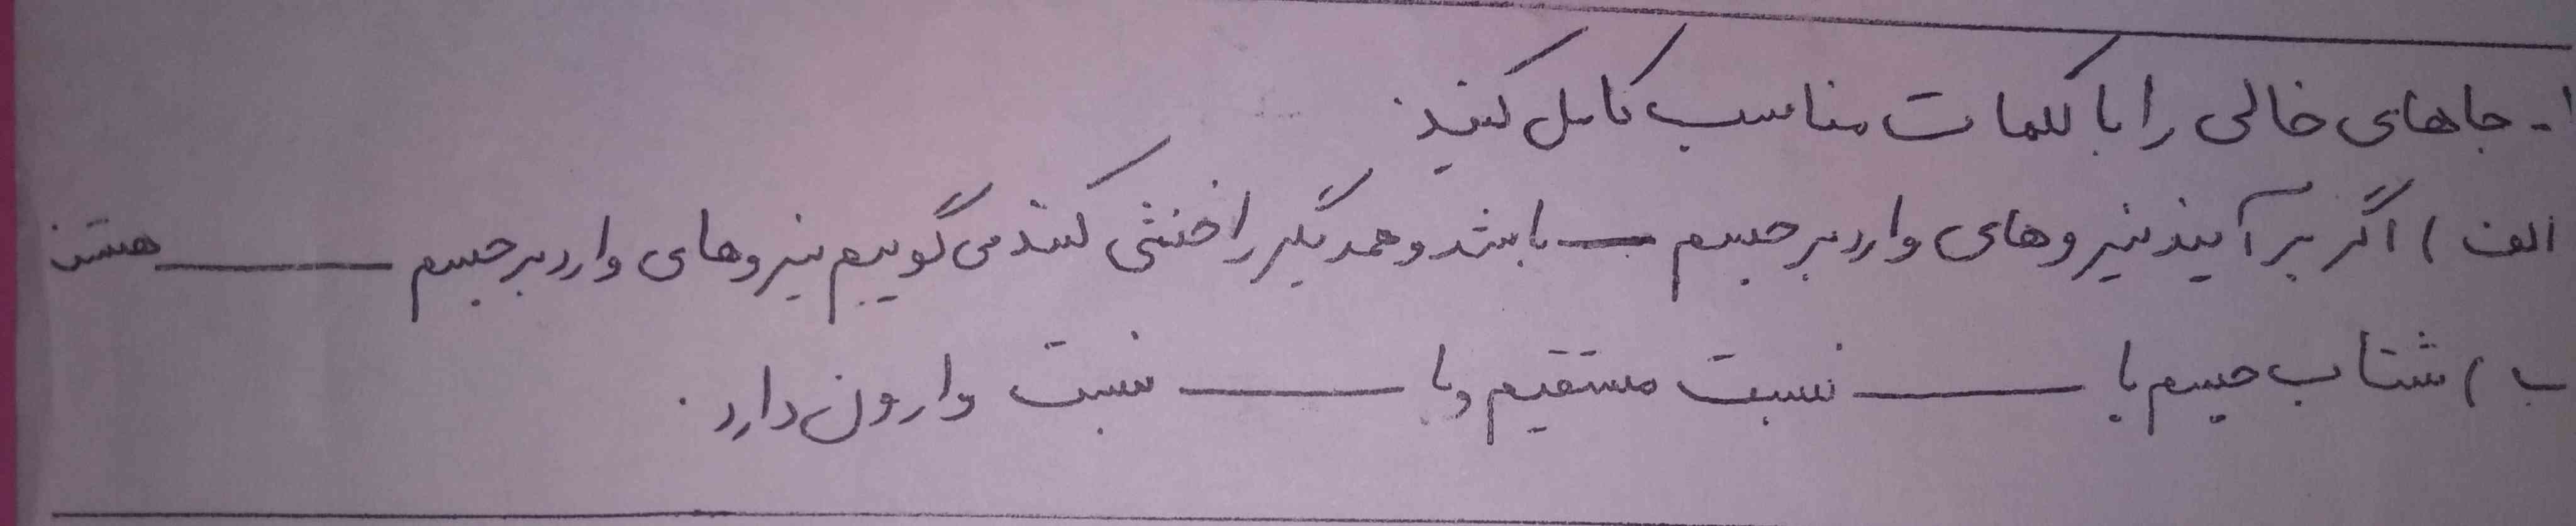 ۱- جاهای خالی را با کلمات مناسب کامل کنید.
الف) اگر برآیند نیروهای وارد بر جسم ــــ باشد و همدیگر را خنثی کنند می گوییم نیروهای وارد بر جسم ــــــــ هستند
ب) شتاب جسم با ــــــــ نسبت مستقیم و با ــــــــ نسبت وارون دارد.